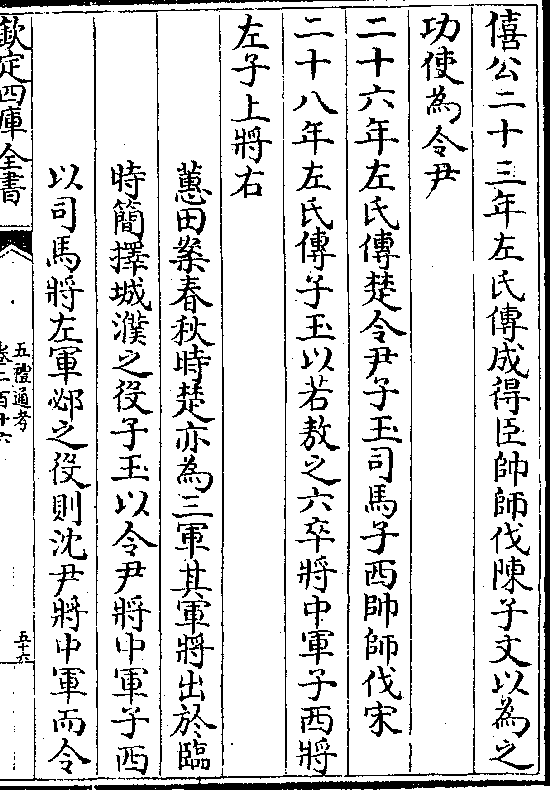 僖公二十三年左氏傳成得臣帥師伐陳子文以為之
功使為令尹
二十六年左氏傳楚令尹子玉司馬子西帥師伐宋
二十八年左氏傳子玉以若敖之六卒將中軍子西將
左子上將右
蕙田案春秋時楚亦為三軍其軍將出於臨
時簡擇城濮之役子玉以令尹將中軍子西
以司馬將左軍邲之役則沈尹將中軍而令
欽定四庫全書
五禮通考
卷二百十六
五十六